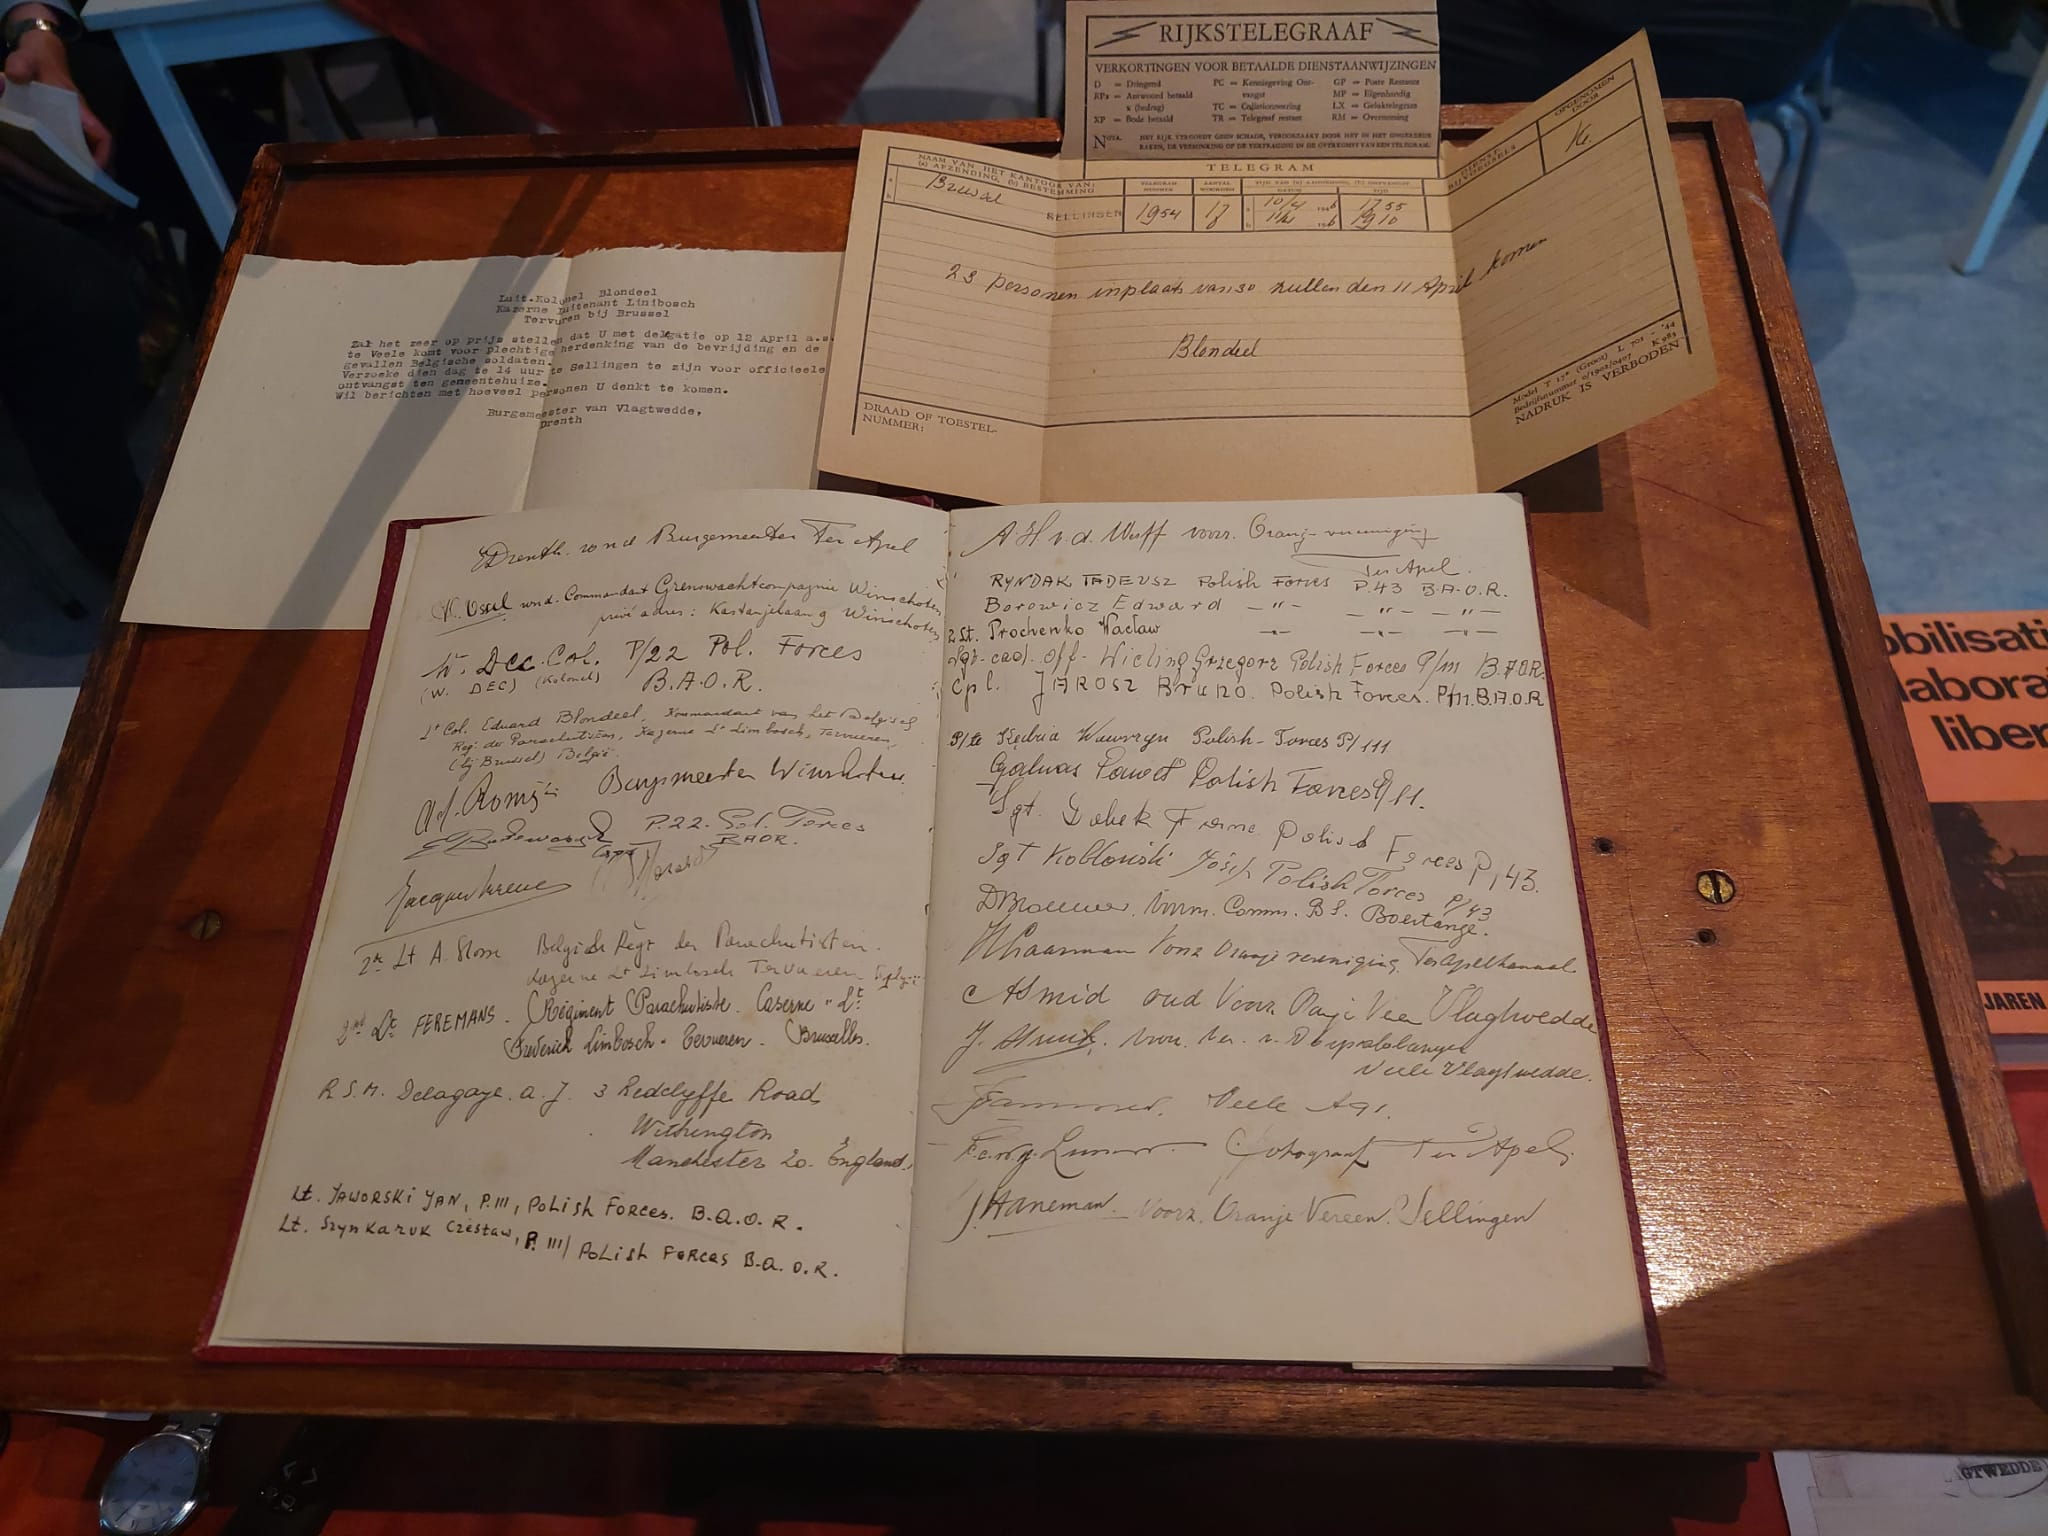 RIJKSTELEGRAAF
VERKORTINGEN VOOR BETAALDE DIENSTAANWIJZINGEN
D = Dringend
RPx = Antwoord betaald
x (bedrag)
XP = Bode betaald
PC = Kennisgeving Ont-
vangst
TC = Collationneering
TR = Telegraaf restant
GP = Poste Restante
MP = Eigenhandig
LX = Gelukstelegram
RM = Overseining
NOTA. HET RIJK VERGOEDT GEEN SCHADE, VEROORZAAKT DOOR HET IN HET ONGEREDE
RAKEN, DE VERMINKING OF DE VERTRAGING IN DE OVERKOMST VAN EEN TELEGRAM.
TELEGRAM
NAAM VAN HET KANTOOR VAN:
(a) AFZENDING, (b) BESTEMMING
TELEGRAM
NUMMER
AANTAL
WOORDEN
TIJD VAN (a) AANBIEDING, (b) ONTVANGST
DATUM
TIJD
DIENST
BIJVOEGSELS
OPGENOMEN
DOOR
a Brussel
b SELLINGEN
1954
17
a 10/4 1946 17 55
b 11/4 1946 1910
23 personen inplaats van 30 zullen den 11 April komen
Blondeel
DRAAD OF TOESTEL-
NUMMER:
Model T 17a (Groot) L 701 - '44
Bedrijfsnummer 0/1902/0407 K 983
NADRUK IS VERBODEN
Luit.Kolonel Blondeel
Kazerne Luitenant Linibosch
Tervuren bij Brussel
Zal het zeer op prijs stellen dat U met delegatie op 12 April a.s.
te Veele komt voor plechtige herdenking van de bevrijding en de
gevallen Belgische soldaten.
Verzoeke dien dag te 14 uur te Sellingen te zijn voor officieele
ontvangst ten gemeentehuize.
Wil berichten met hoeveel personen U denkt te komen.
Burgemeester van Vlagtwedde,
Drenth
Drenth wnd Burgemeester Ter Apel
wnd. Commandant Grenswachtcompagnie Winschoten
privé adres: Kastanjelaan 9 Winschoten
W. Dec. Col. P/22 Pol. Forces
(W. DEC) (Kolonel) B.A.O.R.
Lt Col. Eduard Blondeel, Kommandant van het Belgisch
Reg. der Parachutisten, Kazerne Lt Limbosch, Tervueren,
(bij Brussel) België
Romijn Burgemeester Winschoten
P.22. Pol. Forces
BAOR.
2de Lt A. Belgisch Regt der Parachutisten
Kazerne Lt Limbosch Tervueren
2nd Lt FEREMANS. Régiment Parachutiste. Caserne "Lt
Frederick Limbosch" Tervueren. Bruxelles.
R.S.M. Delagaye. a. J. 3 Redclyffe Road
Withington
Manchester 20. England.
Lt. JAWORSKI JAN, P.III, POLISH FORCES. B.A.O.R.
Lt. SZYNKARUK CZESŁAW, P.III/ POLISH FORCES B.A.O.R.
A.H. v.d. Werff voorz. Oranje-vereeniging
Ter Apel.
RYNDAK TADEUSZ Polish Forces P.43 B.A.O.R.
Borowicz Edward - " - - " - - " -
2 Lt. Prochenko Wacław - " - - " - - " -
Sgt. cad. off. Wieling Grzegorz Polish Forces P/111 B.A.O.R.
Cpl. JAROSZ BRUNO. Polish Forces. P/111. B.A.O.R
P/te Wawrzyn Polish-Forces P/111
Polish Forces P/111.
Sgt. Polish Forces P,43.
Sgt Kobłoński Józef Polish Forces P/43
Comm. B.S. Boertange.
Haarman Voorz Oranjevereeniging. Ter Apelkanaal
Smid oud Voorz. Oranje Veen Vlagtwedde
J. voorz. Ver. v. Dorpsbelangen
Veele Vlagtwedde.
Veele
Fotograaf Ter Apel.
J. Haneman. Voorz. Oranje Vereen. Sellingen
JAREN
GTWEDDE